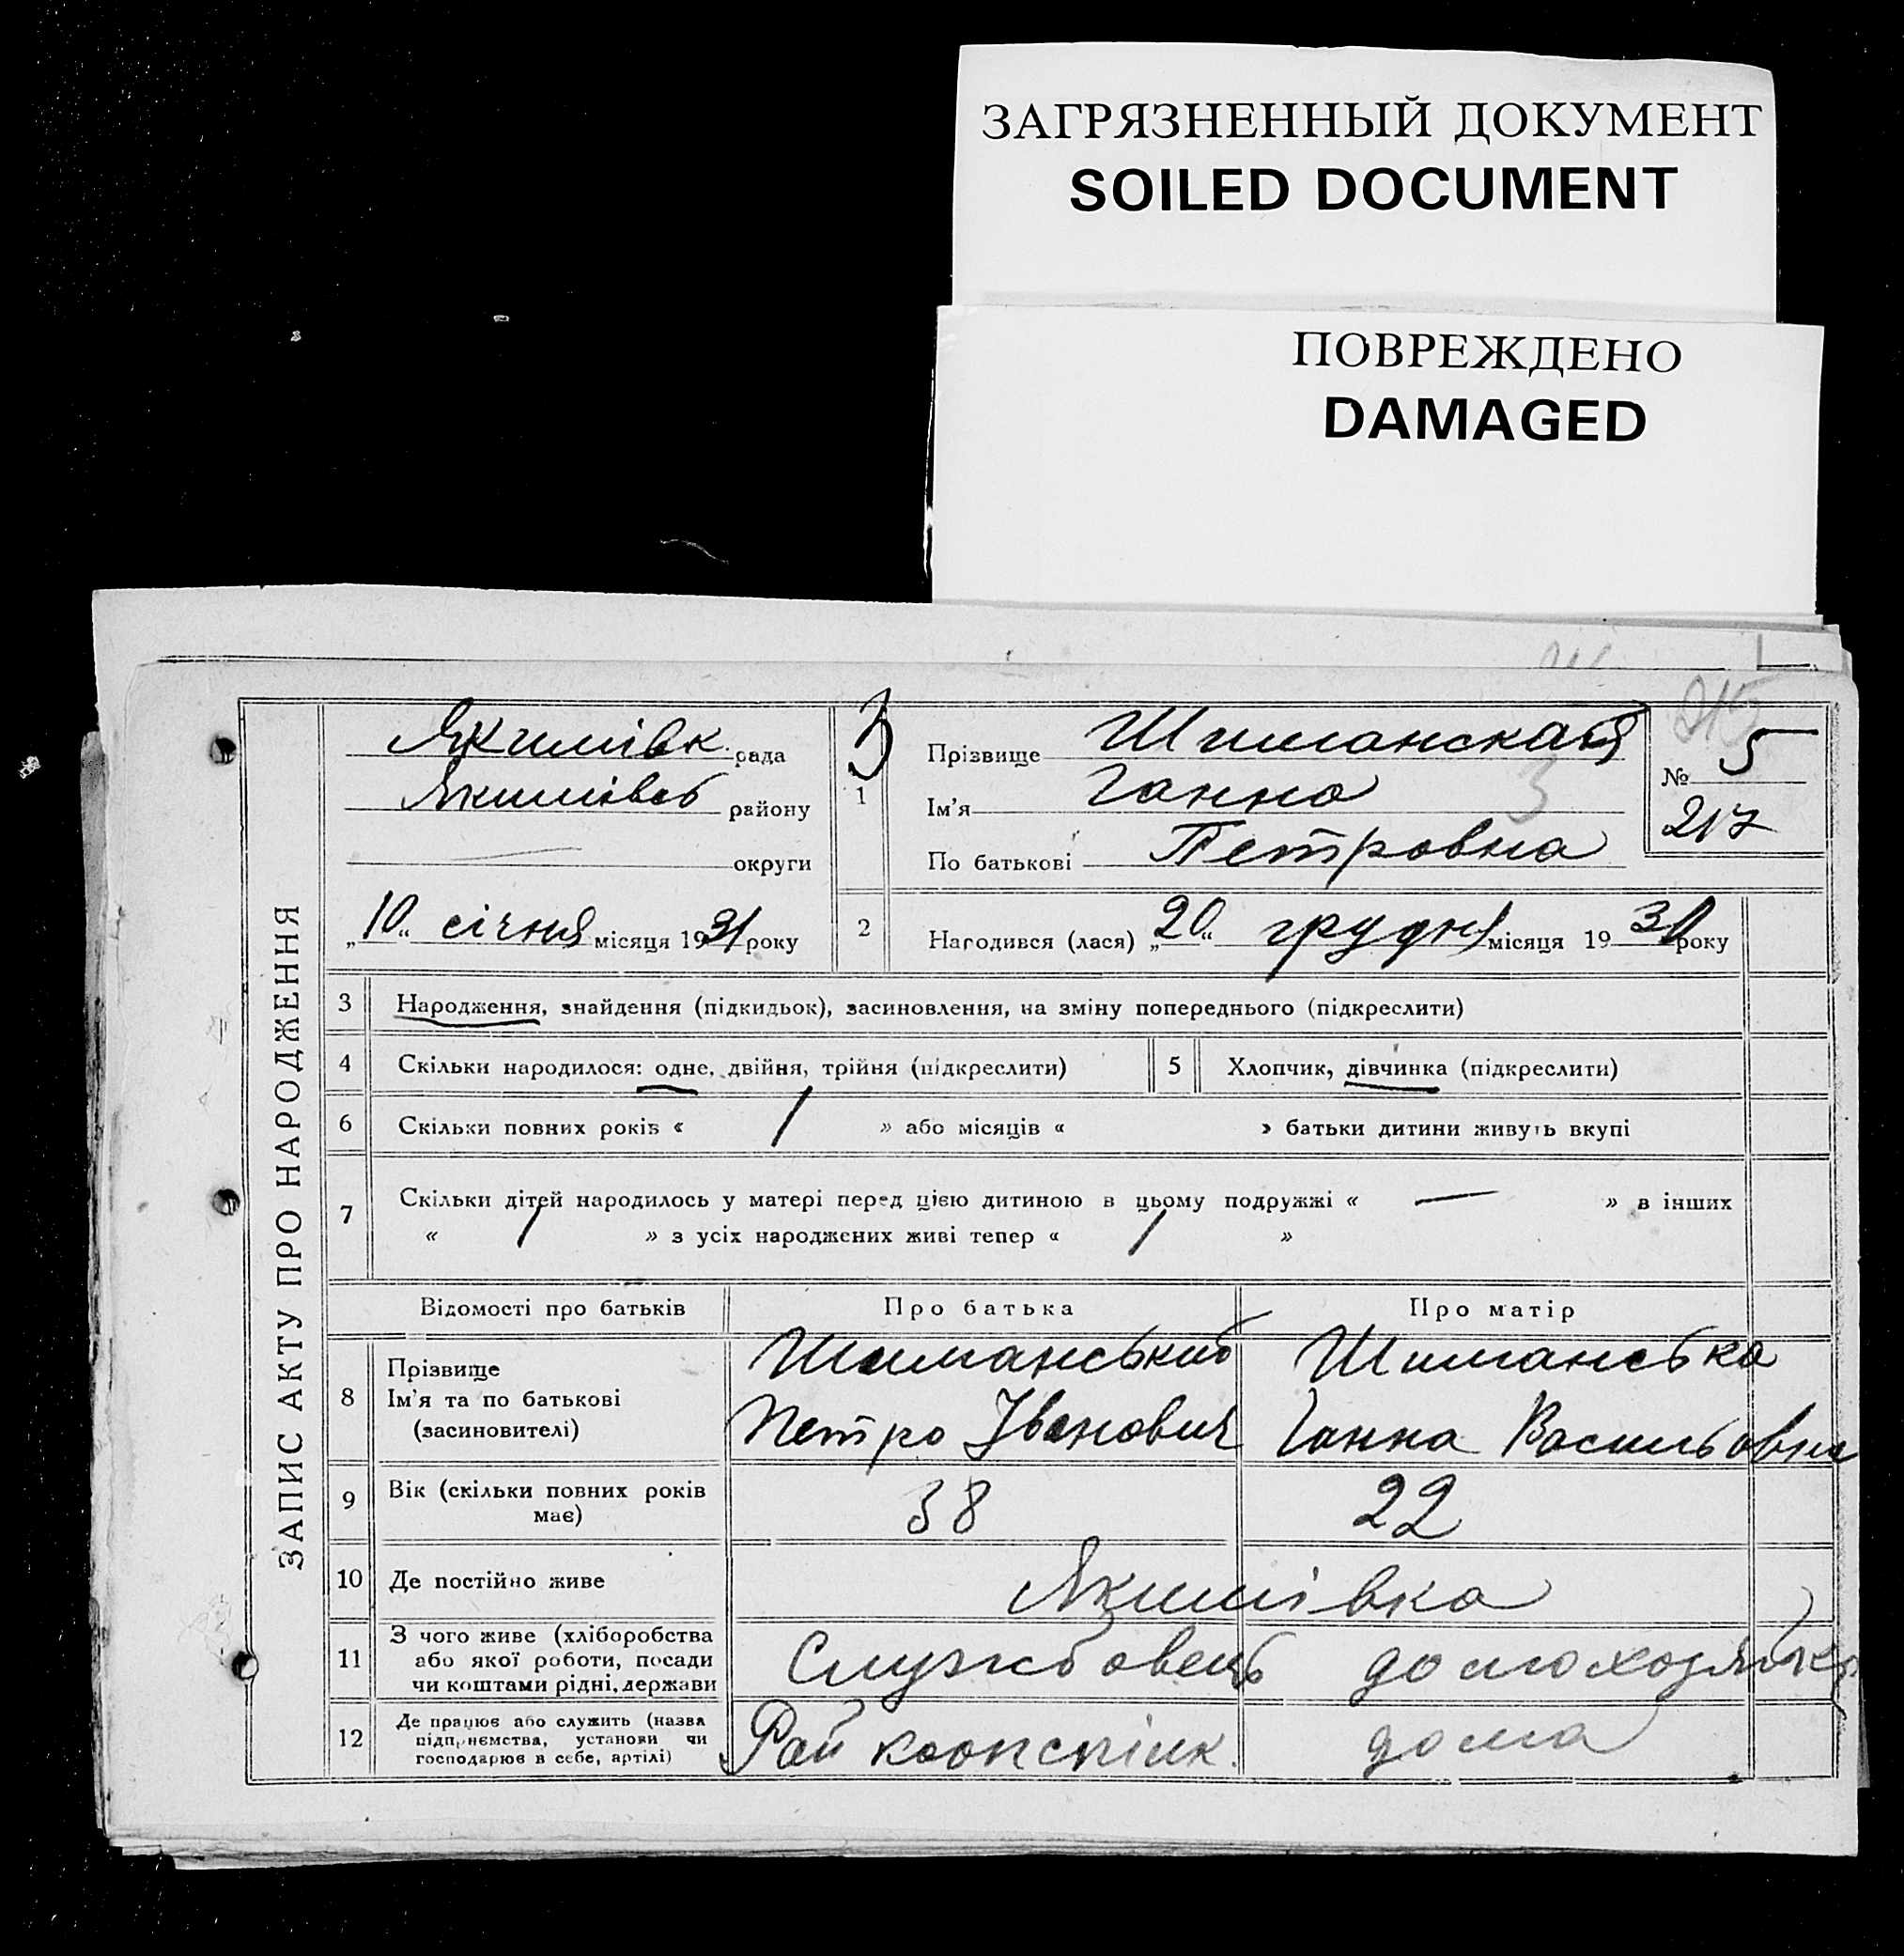 ЗАГРЯЗНЕННЫЙ ДОКУМЕНТ
SOILED DOCUMENT
ПОВРЕЖДЕНО
DAMAGED
ЗАПИС АКТУ ПРО НАРОДЖЕННЯ
Якимівк. рада
Якимівсь району
округи
„10“ січня місяця 1931 року
3
1
Прізвище Шиманская
Ім'я Ганна
По батькові Петровна
№ 5
217
3
2 Народився (лася) „20“ грудня місяця 1930 року
3 Народження, знайдення (підкидьок), засиновлення, на зміну попереднього (підкреслити)
4 Скільки народилося: одне, двійня, трійня (підкреслити)
5 Хлопчик, дівчинка (підкреслити)
6 Скільки повних років « 1 » або місяців « » батьки дитини живуть вкупі
7 Скільки дітей народилось у матері перед цією дитиною в цьому подружжі « — » в інших
« 1 » з усіх народжених живі тепер « 1 »
Відомості про батьків Про батька Про матір
8 Прізвище Шиманський Шиманська
Ім'я та по батькові Петро Іванович Ганна Васильовна
(засиновителі)
9 Вік (скільки повних років має) 38 22
10 Де постійно живе Якимівка
11 З чого живе (хліборобства
або якої роботи, посади
чи коштами рідні, держави
Службовець домохозяйка
12 Де працює або служить (назва
підприємства, установи чи
господарює в себе, артілі)
Рай коопспілк. дома